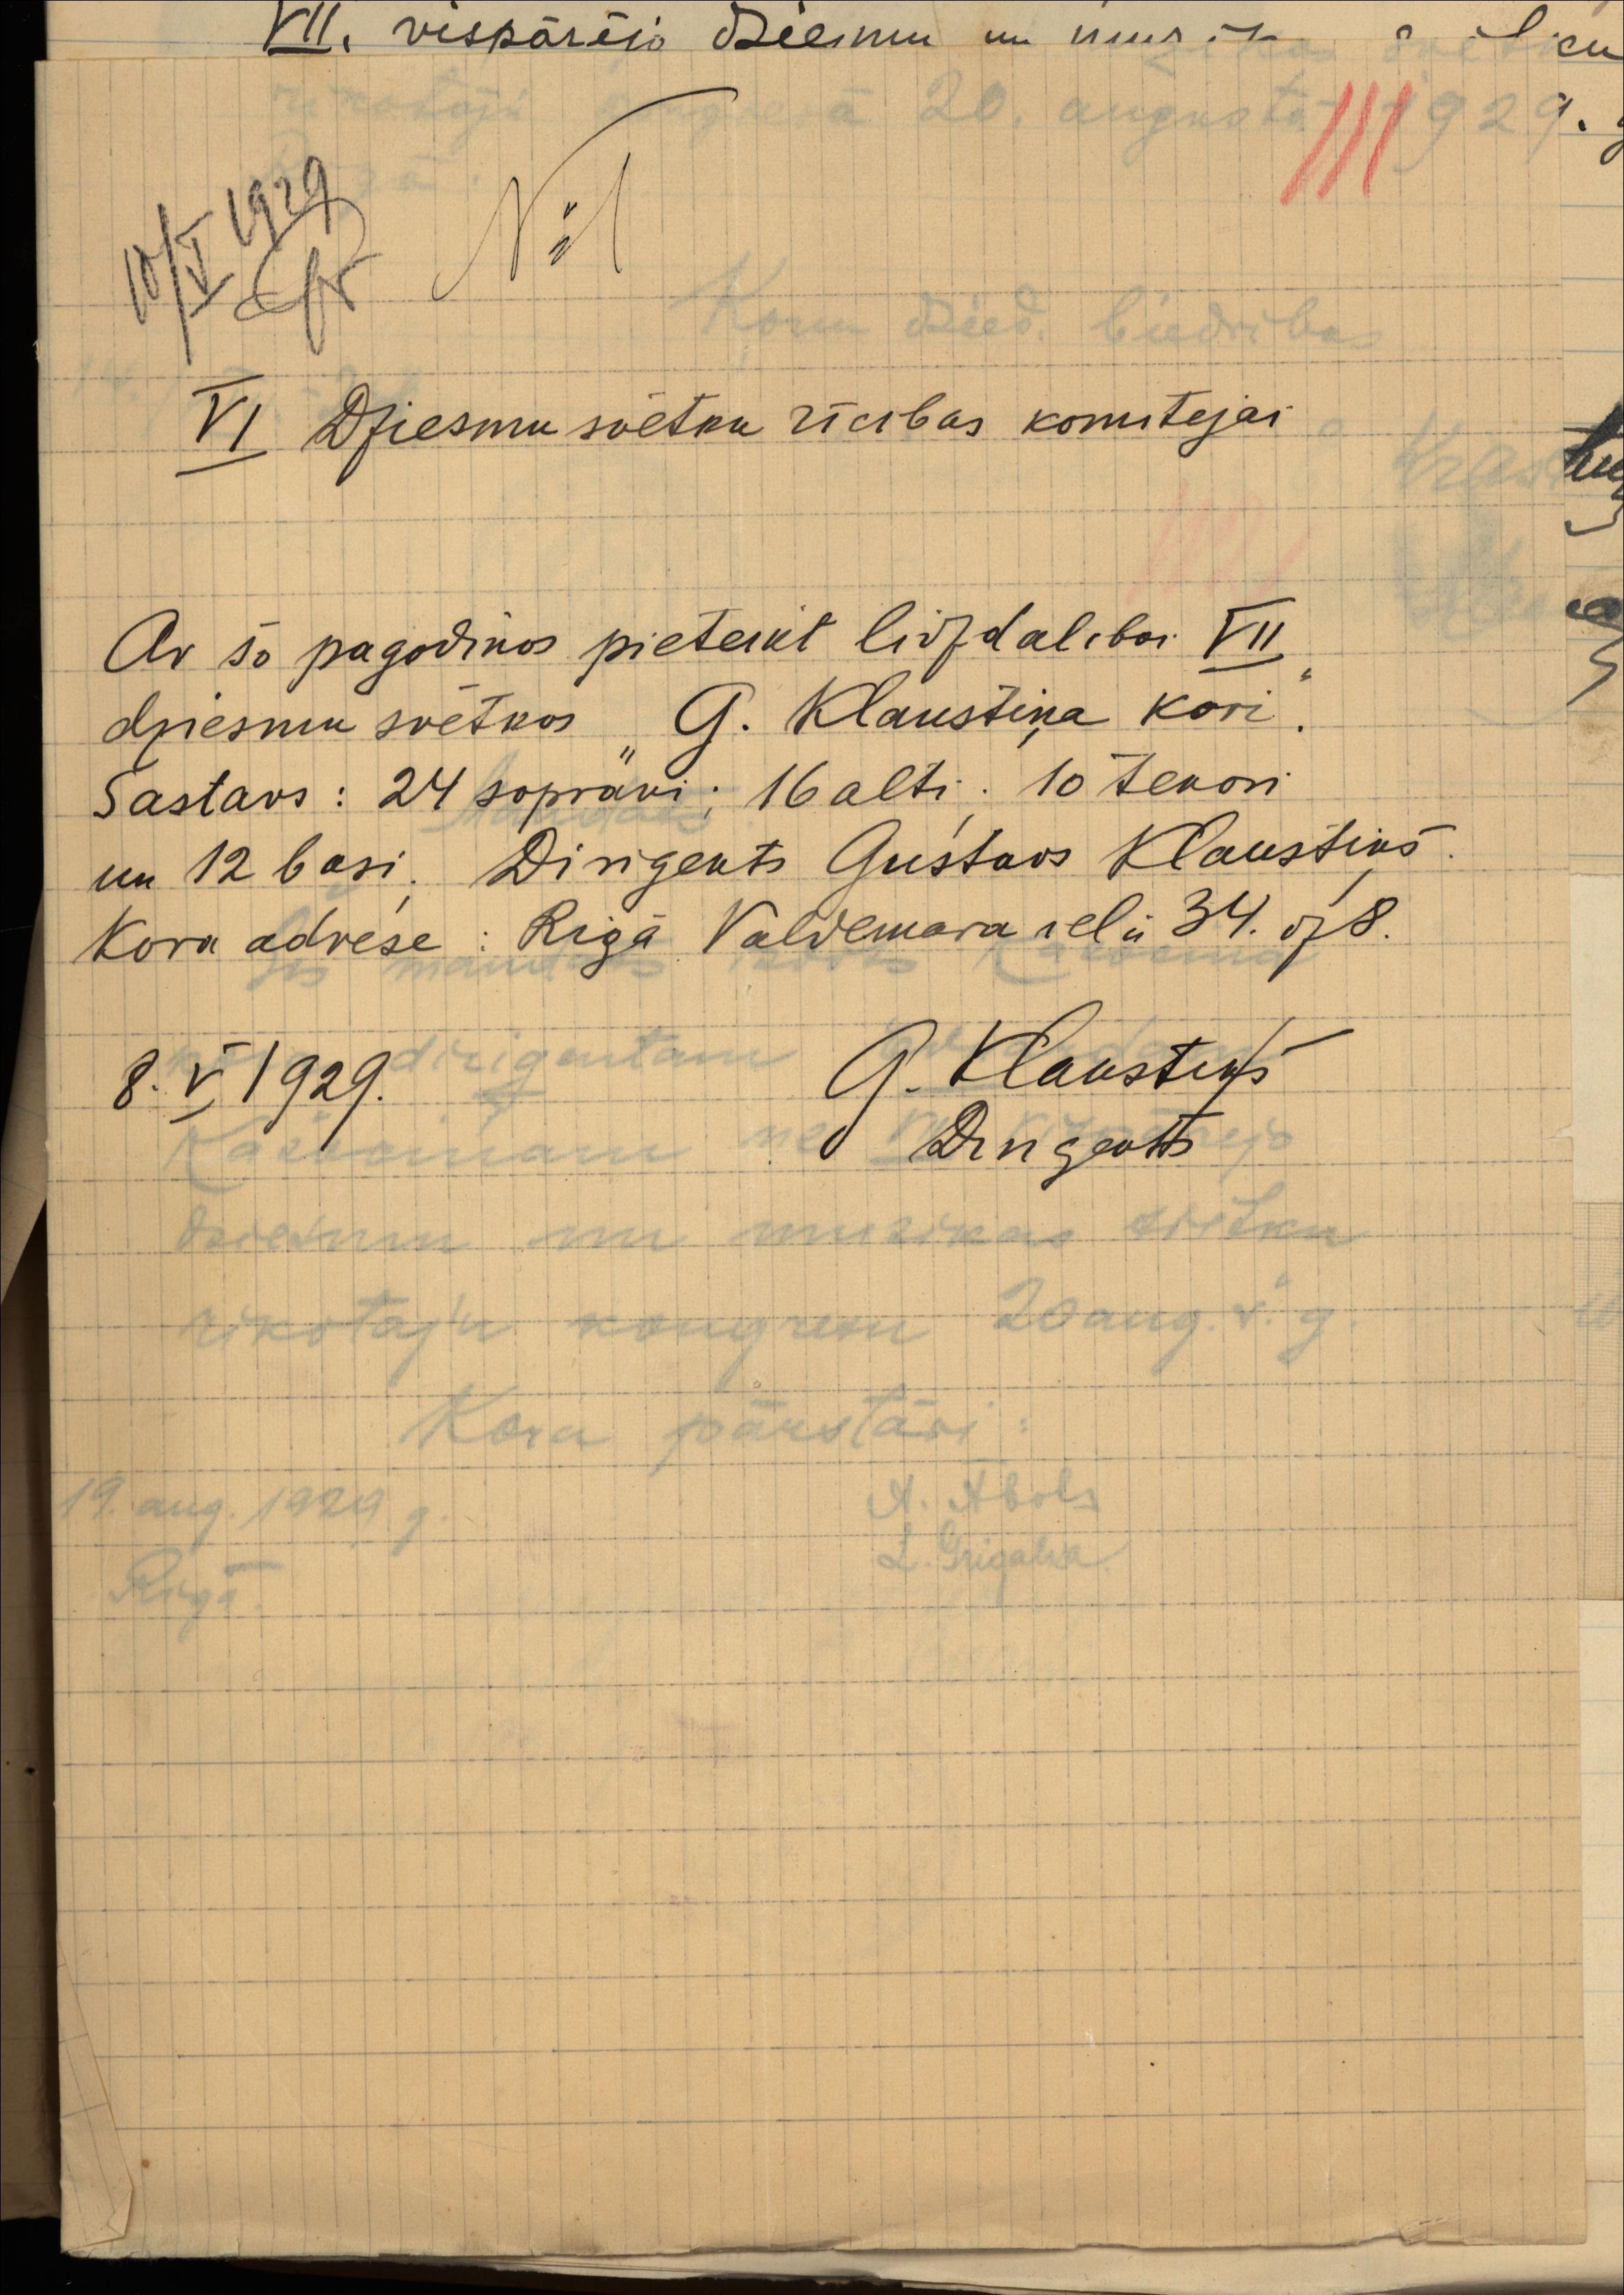 VII. vispārējo dziesmu un
1929.
10/V 1929
№ 1
VI Dziesmu svētku rīcības komitejai
Ar šo pagodinos pieteikt līdzdalībai VII
dziesmu svētkos „G. Klaustiņa kori".
Sastavs: 24 soprāni; 16 alti; 10 tenori
un 12 basi. Dirigents Gustavs Klaustiņš.
Kora adrese: Rīgā Valdemara ielā 34. dz 8.
8. V 1929. G. Klaustiņš
Dirigents
dirigentam
dziesmu un muzikas svētku
rīkotaju kongresu 20 aug. š. g.
Kora pārstāvi:
19. aug. 1929 g. A. Abols
Rīgā. L. Grigalva